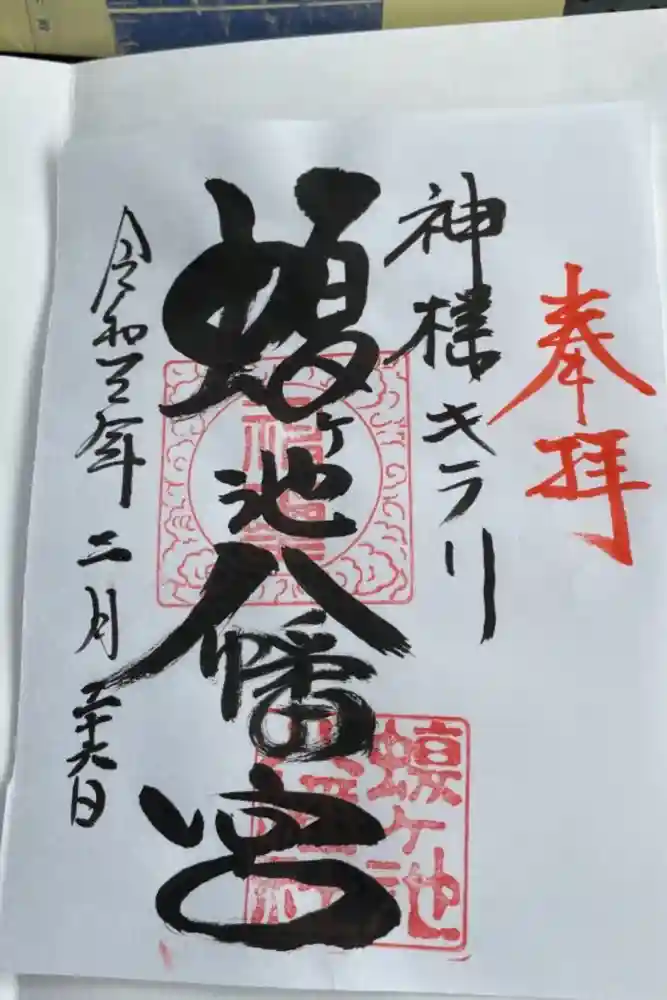 奉拝
神様キラリ
蝮ヶ池八幡宮
令和三年 二月 二十六日
蝮ヶ池